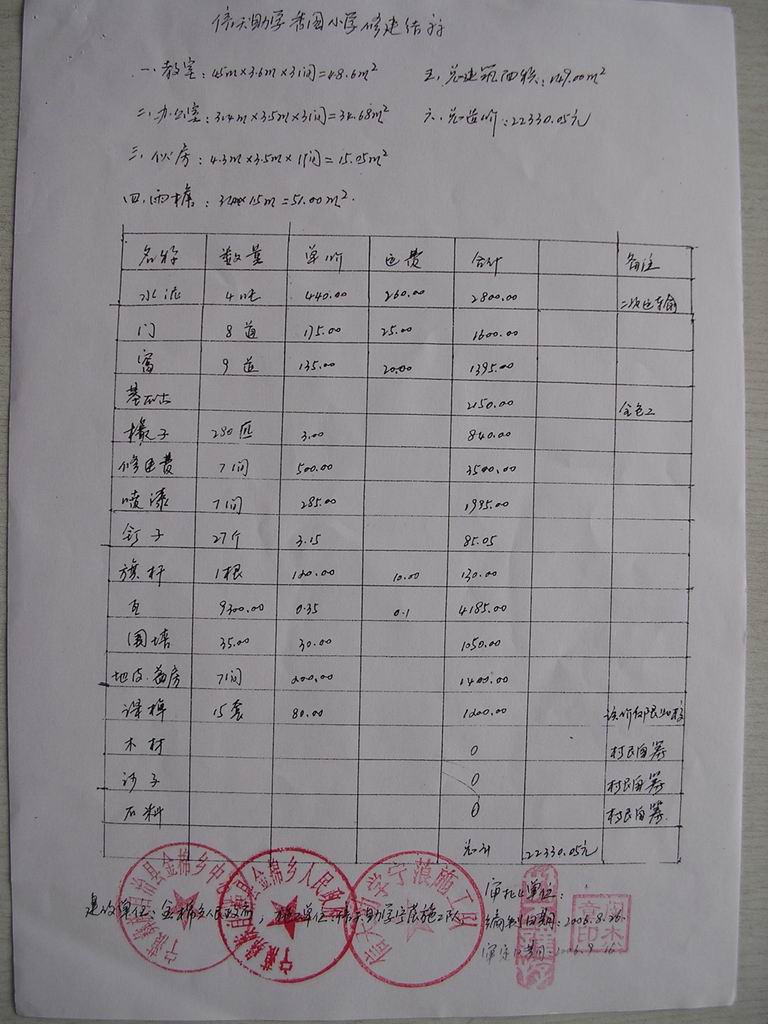 倍天助学 小学修建结算
一.教室:45m×3.6m×3间=48.6m²
五.总建筑面积:149.00m²
二.办公室:3.4m×3.5m×3间=34.68m²
六.总造价:22330.05元
三.伙房:4.3m×3.5m×1间=15.05m²
四.雨檐: ×15m=51.00m².
名称 数量 单价 运费 合计 备注
水泥 4吨 440.00 260.00 2800.00 二次运输
门 8道 175.00 25.00 1600.00
窗 9道 135.00 20.00 1395.00
基础 2150.00 全包工
椽子 280匹 3.00 840.00
修 费 7间 500.00 3500.00
喷漆 7间 285.00 1995.00
钉子 27斤 3.15 85.05
旗杆 1根 120.00 10.00 130.00
瓦 9300.00 0.35 0.1 4185.00
围墙 35.00 30.00 1050.00
地皮. 房 7间 200.00 1400.00
课桌 15套 80.00 1200.00
木材 0 村民自筹
沙子 0 村民自筹
石料 0 村民自筹
总计 22330.05元
建设单位:金棉乡人民政府; 施工单位:倍天助学宁蒗施工队
审批单位:
编制日期:2006.8.26.
审定日期:2006.9.16
金棉乡人民政府
倍天助学宁蒗施工队